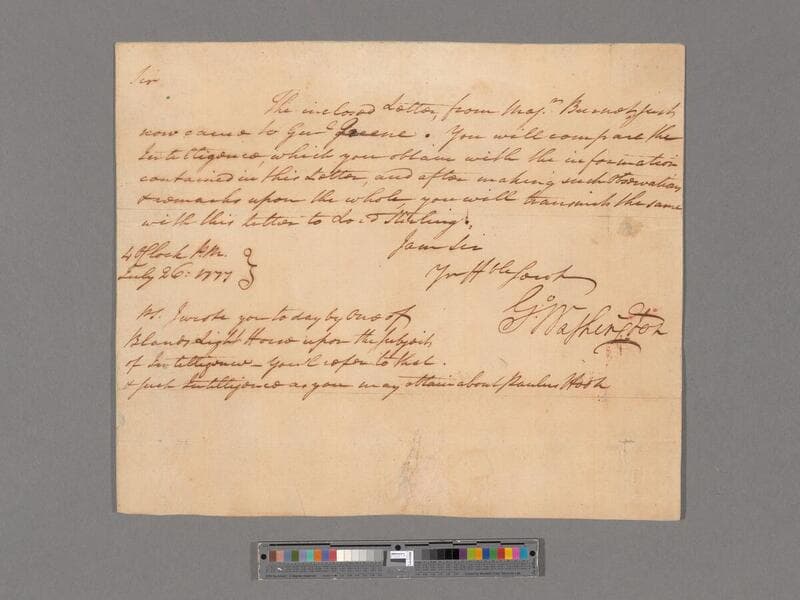 Sir
The inclosed Letter, from Maj.r Burnet, just
now came to Gen.l Greene. You will compare the
Intelligence, which you obtain with the information
contained in this Letter, and after making such Observations
& remarks upon the whole, you will transmit the same
with this letter to Lord Stirling.
I am Sir
Yr Hble Servt
4 OClock P.M.
July 26: 1777
G.o Washington
Ps. I wrote you to day by One of
Blands Light Horse upon the subject
of Intelligence – You'l refer to that
& such Intelligence as you may obtain about Paulus Hook